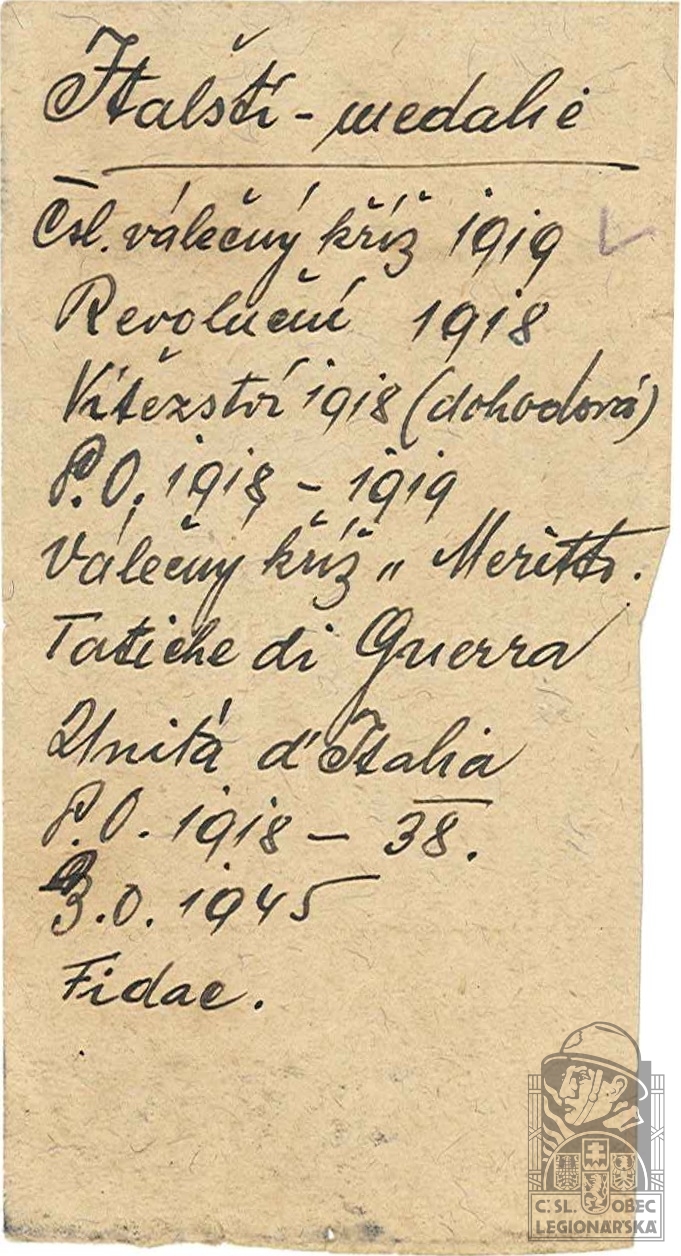 Italští - medalie
Čsl. válečný kříž 1919
Revoluční 1918
Vítězství 1918 (dohodová)
P.O. 1918 - 1919
Válečný kříž „ Meritto.
Fatiche di Guerra
Unitá d'Italia
P.O. 1918 - 38.
B.O. 1945
Fidac.
ČSL. OBEC
LEGIONÁŘSKÁ